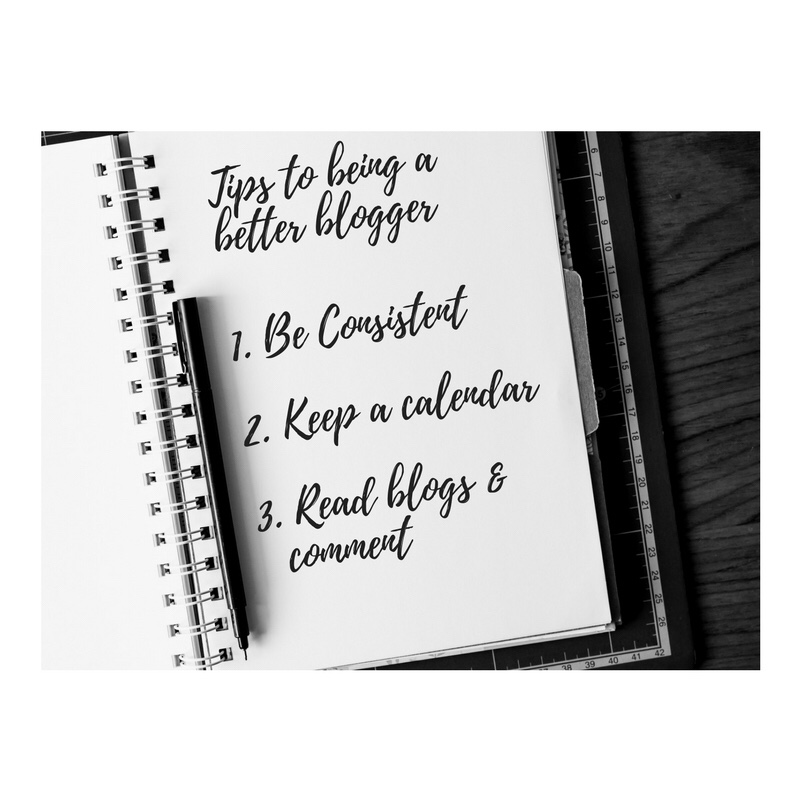 Tips to being a
better blogger
1. Be Consistent
2. Keep a calendar
3. Read blogs &
comment
6
7
8
9
10
11
12
13
14
15
16
17
18
19
20
21
22
23
24
25
26
38 39 40 41 42